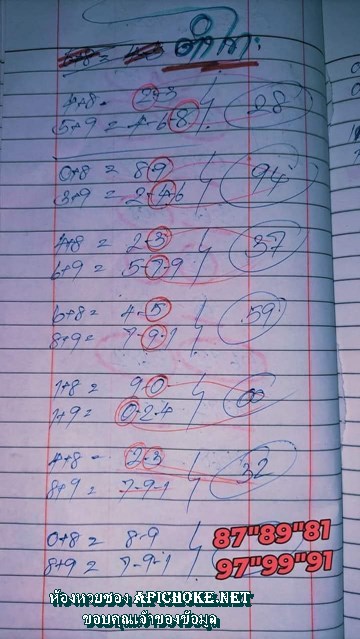 4+8= 2-3 28
5+9= 4-6-8
0+8= 8-9 94
3+9= 2-4-6
4+8= 2-3 37
6+9= 5-7-9
6+8= 4-5 59
8+9= 7-9-1
1+8= 9-0 00
1+9= 0-2-4
4+8= 2-3 32
8+9= 7-9-1
0+8= 8-9 87"89"81
8+9= 7-9-1 97"99"91
ห้องหวยซอง APICHOKE.NET
ขอบคุณเจ้าของข้อมูล